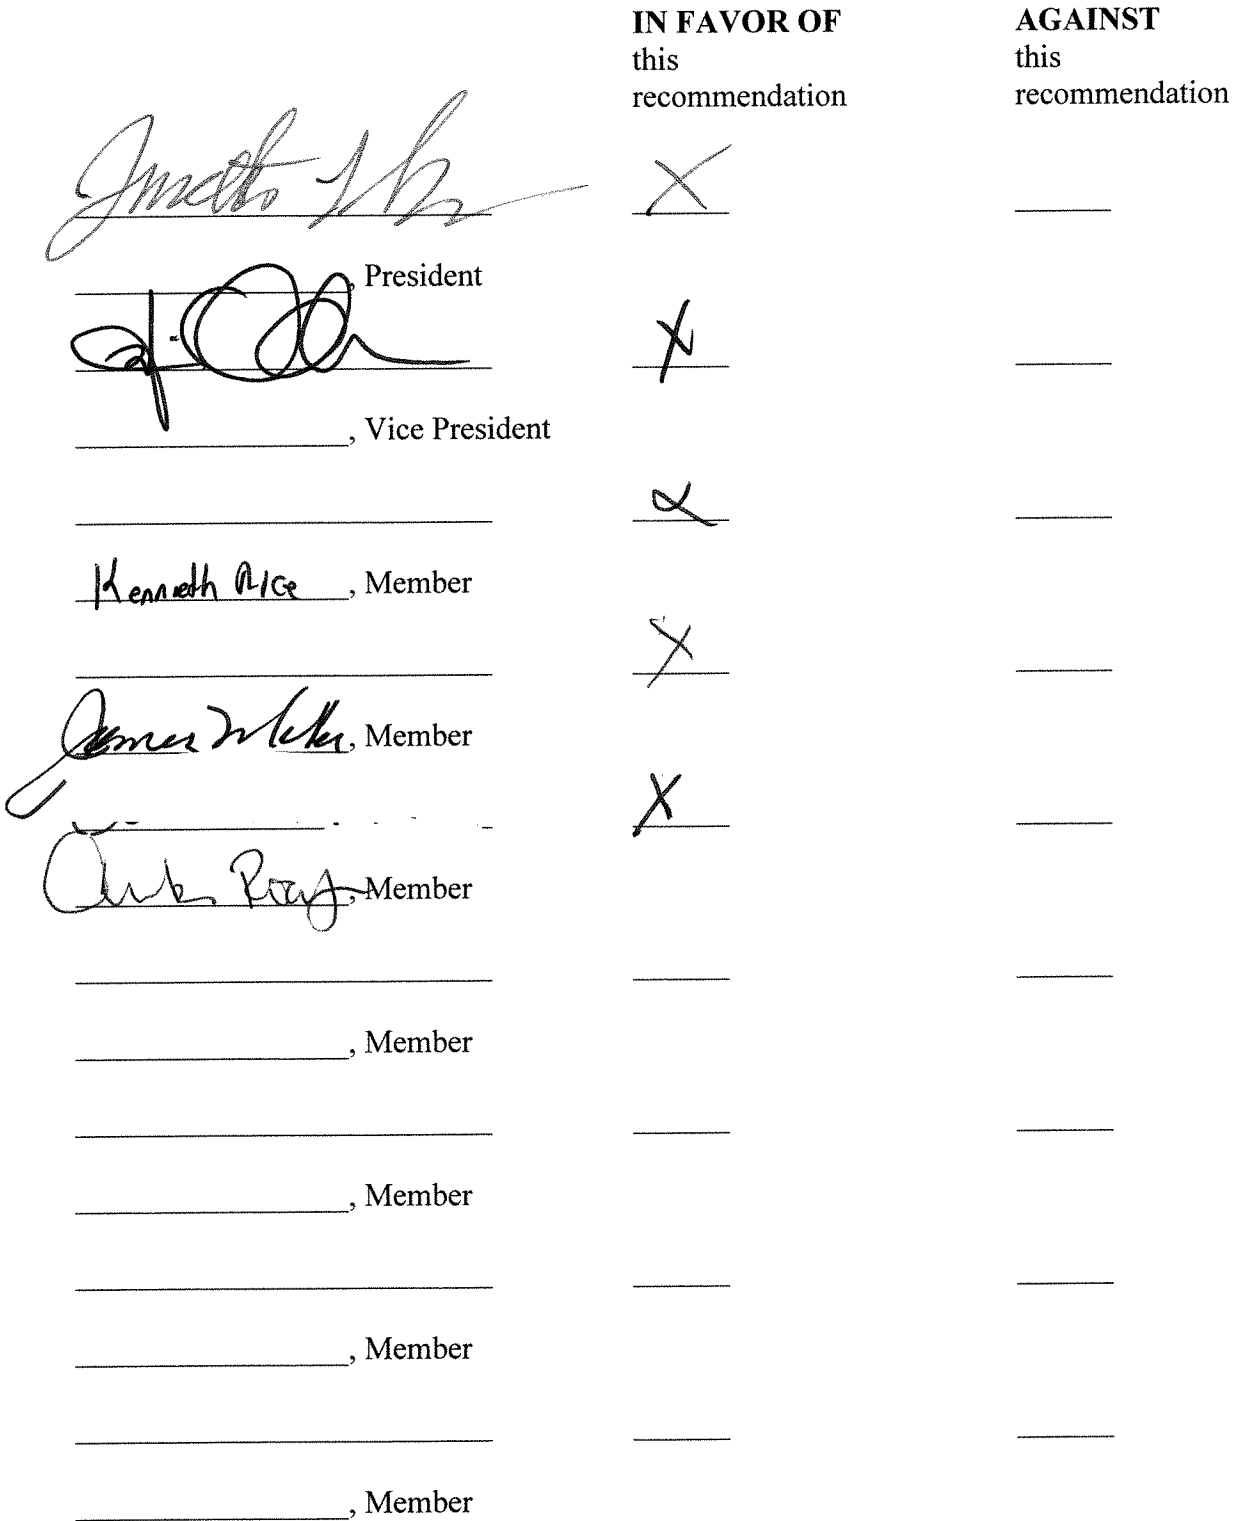 IN FAVOR OF AGAINST
this this
recommendation recommendation
X
, President
X
, Vice President
X
Kenneth Rice, Member
X
James, Member
X
, Member
, Member
, Member
, Member
, Member